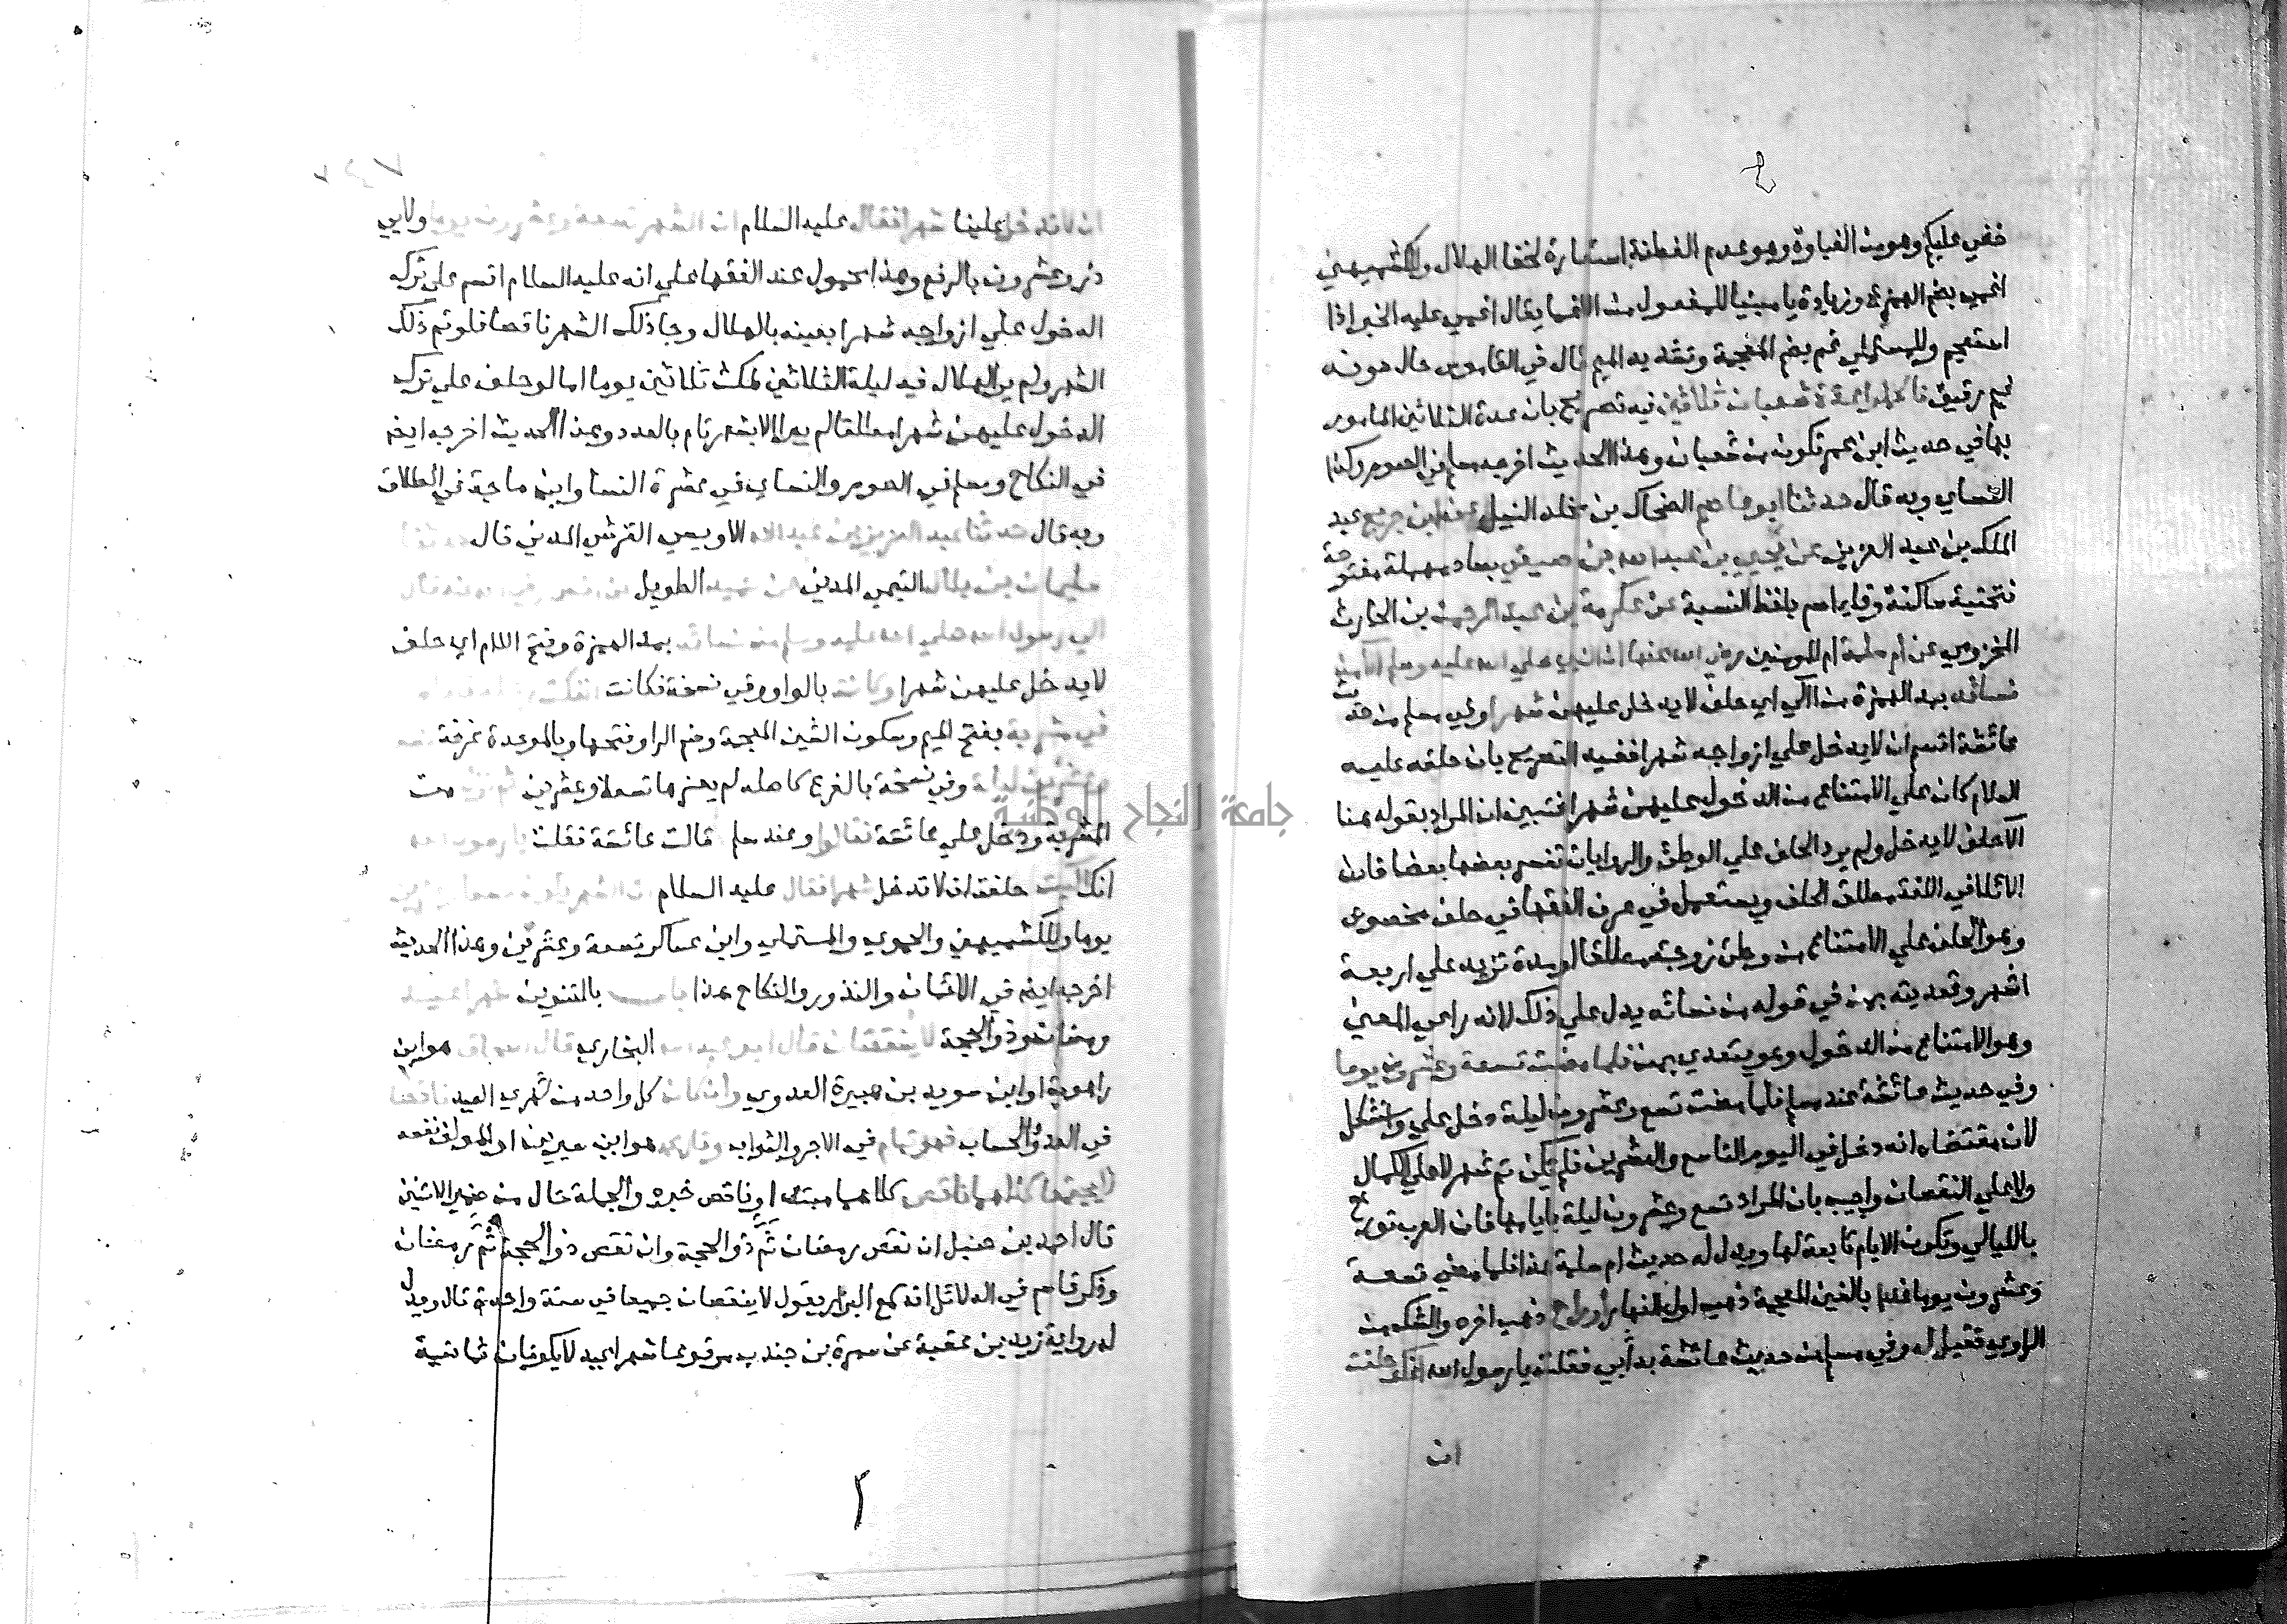 خفي عليكم وهو من الغباوة وهو عدم الفطنة استعارة لخفا الهلال وللكشميهني
اغمي بضم الهمزة وزيادة يا مبنيا للمفعول من الاغما يقال اغمي عليه الخبر اذا
استعجم وللمستملي غم بضم المعجمة وتشديد الميم قال في القاموس حال دونه
غيم رقيق فاكملوا عدة شعبان ثلاثين فيه تصريح بان عدة الثلاثين المامور
بها في حديث ابن عمر تكون من شعبان وهذا الحديث اخرجه مسلم في الصوم وكذا
النساي وبه قال حدثنا ابو عاصم الضحاك بن مخلد النبيل عن ابن جريج عبد
الملك بن عبد العزيز عن يحيي بن عبد الله بن صيفي بصاد مهملة مفتوحة
فتحتية ساكنة وفا اسم بلفظ النسبة عن عكرمة بن عبد الرحمن بن الحارث
المخزومي عن ام سلمة ام المومنين رضي الله عنها ان النبي صلي الله عليه وسلم الا من
نسائه بمد الهمزة من الا اي حلف لا يدخل عليهن شهرا وفي مسلم من حديث
عائشة اقسم ان لا يدخل علي ازواجه شهرا ففيه التصريح بان حلفه عليه
السلام كان علي الامتناع من الدخول عليهن شهرا فتبين ان المراد بقوله هنا
الا حلف لا يدخل ولم يرد الحلف علي الوطئ والروايات تفسر بعضها بعضا فان
الايلا في اللغة مطلق الحلف ويستعمل في عرف الفقها في حلف مخصوص
وهو الحلف علي الامتناع من وطئ زوجته مطلقا او مدة تزيد علي اربعة
اشهر وتعديته بمن في قوله من نسائه يدل علي ذلك لانه راعي المعني
وهو الامتناع من الدخول وهو يتعدي بمن فلما مضت تسعة وعشرون يوما
وفي حديث عائشة عند مسلم فلما مضت تسع وعشرون ليلة دخل علي واستشكل
لان مقتضاه انه دخل في اليوم التاسع والعشرين فلم يكن ثم شهر لا علي الكمال
ولا علي النقصان واجيب بان المراد تسع وعشرون ليلة بايامها فان العرب تورخ
بالليالي وتكون الايام تابعة لها ويدل له حديث ام سلمة هذا فلما مضي تسعة
وعشرون يوما غدا بالغين المعجمة ذهب اول النهار او راح ذهب اخره والشك من
الراوي فقيل له وفي مسلم من حديث عائشة بدا بي فقلت يا رسول الله انك حلفت
ان
ان لا تدخل علينا شهرا فقال عليه السلام ان الشهر تسعة وعشرون يوما ولابي
ذر وعشرون بالرفع وهذا محمول عند الفقها علي انه عليه السلام اقسم علي ترك
الدخول علي ازواجه شهرا بعينه بالهلال وجا ذلك الشهر ناقصا فلو تم ذلك
الشهر ولم ير الهلال فيه ليلة الثلاثين لمكث ثلاثين يوما اما لو حلف علي ترك
الدخول عليهن شهرا مطلقا لم يبر الا بشهر تام بالعدد وهذا الحديث اخرجه ايضا
في النكاح ومسلم في الصوم والنساي في عشرة النسا وابن ماجة في الطلاق
وبه قال حدثنا عبد العزيز بن عبد الله الاويسي القرشي المدني قال حدثنا
سليمان بن بلال التيمي المدني عن حميد الطويل عن انس رضي الله عنه قال
الي رسول الله صلي الله عليه وسلم من نسائه بمد الهمزة وفتح اللام اي حلف
لا يدخل عليهن شهرا وكانت بالواو وفي نسخة فكانت انفكت رجله فاقام
في مشربة بفتح الميم وسكون الشين المعجمة وضم الرا وفتحها وبالموحدة غرفة تسعا
وعشرين ليلة وفي نسخة بالفرع كاصله لم يعزها تسعة وعشرين ثم نزل من
المشربة ودخل علي عائشة فقالوا وعند مسلم قالت عائشة فقلت يا رسول الله
انك اليت حلفت ان لا تدخل شهرا فقال عليه السلام ان الشهر يكون تسعا وعشرين
يوما وللكشميهني والحموي والمستملي وابن عساكر تسعة وعشرين وهذا الحديث
اخرجه ايضا في الايمان والنذور والنكاح هذا باب بالتنوين شهرا عيد
رمضان وذو الحجة لا ينقصان قال ابو عبد الله البخاري قال اسحاق هو ابن
راهوية او ابن سويد بن هبيرة العدوي وان كان كل واحد من شهري العيد ناقصا
في العدد والحساب فهو تمام في الاجر والثواب وقال محمد هو ابن سيرين او المولف نفسه
لا يجتمعان كلاهما ناقص كلاهما مبتدا وناقص خبره والجملة حال من ضمير الاثنين
قال احمد بن حنبل ان نقص رمضان تم ذو الحجة وان نقص ذو الحجة تم رمضان
وذكر قاسم في الدلائل انه سمع البزار يقول لا ينقصان جميعا في سنة واحدة قال ويدل
له رواية زيد بن عقبة عن سمرة بن جندب مرفوعا شهرا عيد لا يكونان ثمانية
جامعة النجاح الوطنية